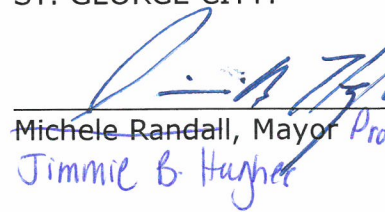 ST. GEORGE CITY:
Michele Randall, Mayor Pro
Jimmie B. Hughes